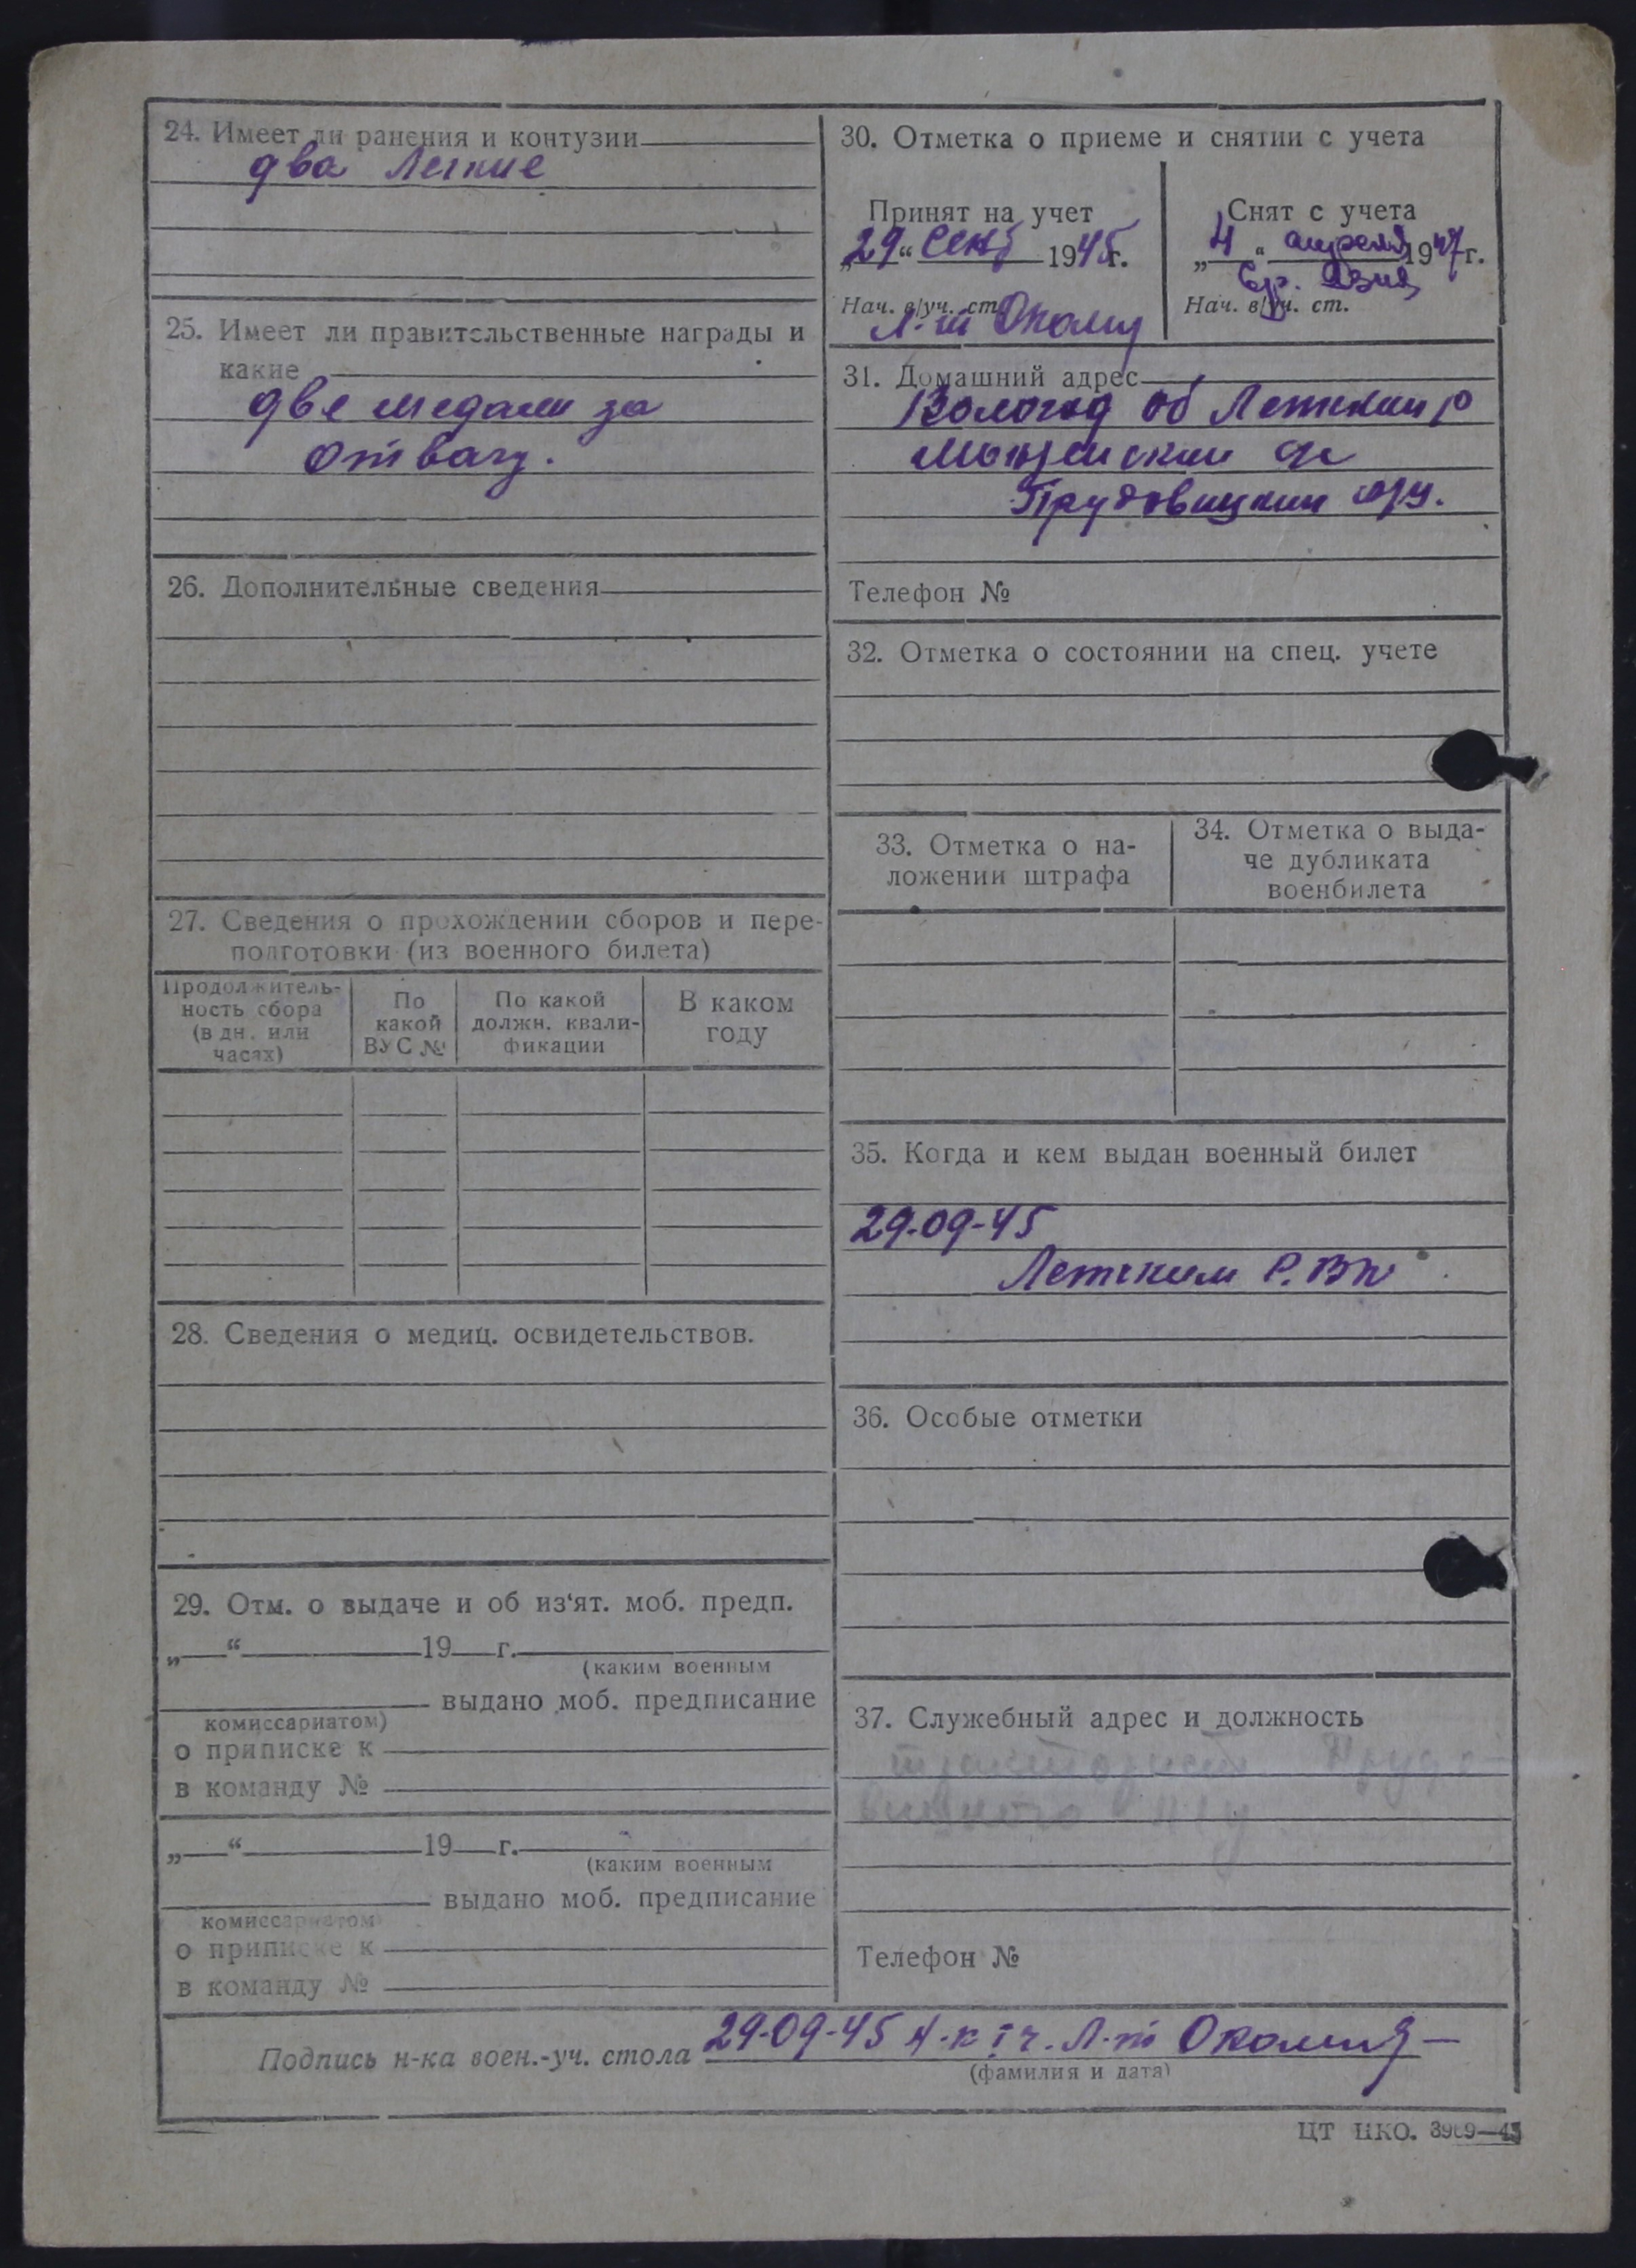 24. Имеет ли ранения и контузии
два легкие
25. Имеет ли правительственные награды и
какие
две медали за
отвагу.
26. Дополнительные сведения
27. Сведения о прохождении сборов и пере-
подготовки (из военного билета)
Продолжитель-
ность сбора
(в дн. или
часах)
По
какой
ВУС №
По какой
должн. квали-
фикации
В каком
году
28. Сведения о медиц. освидетельствов.
29. Отм. о выдаче и об из‘ят. моб. предп.
„ “ 19 г.
(каким военным
выдано моб. предписание
комиссариатом)
о приписке к
в команду №
„ “ 19 г.
(каким военным
выдано моб. предписание
комиссариатом)
о приписке к
в команду №
30. Отметка о приеме и снятии с учета
Принят на учет
„29“ сент 1945г.
Нач. в/уч. ст.
Л-т
Снят с учета
„4“ апреля 1947г.
Ср. Азия
Нач. в/уч. ст.
31. Домашний адрес
Вологод об Летский р
с/с
Прудовицкий
Телефон №
32. Отметка о состоянии на спец. учете
33. Отметка о на-
ложении штрафа
34. Отметка о выда-
че дубликата
военбилета
35. Когда и кем выдан военный билет
29-09-45
Летским Р.В.К
36. Особые отметки
37. Служебный адрес и должность
тракторист
Телефон №
Подпись н-ка воен.-уч. стола 29-09-45 Н-к I ч. Л-т
(фамилия и дата)
ЦТ НКО. 3969—45